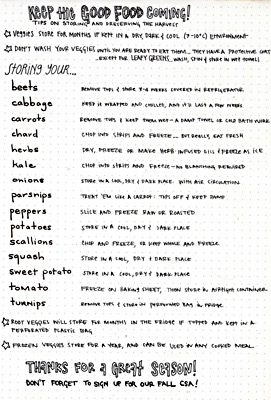 KEEP THE GOOD FOOD COMING!
TIPS ON STORING AND PRESERVING THE HARVEST
VEGGIES STORE FOR MONTHS IF KEPT IN A DRY, DARK & COOL (7-10°C) ENVIRONMENT
DON'T WASH YOUR VEGGIES UNTIL YOU ARE READY TO EAT THEM... THEY HAVE A PROTECTIVE COAT
...EXCEPT FOR LEAFY GREENS... WASH, SPIN & STORE IN WET TOWELS
STORING YOUR...
beets REMOVE TOPS & STORE 2-4 WEEKS COVERED IN REFRIGERATOR
cabbage KEEP IT WRAPPED AND CHILLED, AND IT'LL LAST A FEW WEEKS
carrots REMOVE TOPS & KEEP THEM IN A DAMP TOWEL OR COLD BATH WORKS
chard CHOP INTO STRIPS AND FREEZE... BUT REALLY, EAT FRESH
herbs DRY, FREEZE OR MAKE HERB INFUSED OILS & FREEZE AS ICE
kale CHOP INTO STRIPS AND FREEZE - NO BLANCHING REQUIRED
onions STORE IN A COOL, DRY & DARK PLACE WITH AIR CIRCULATION
parsnips TREAT 'EM LIKE A CARROT: TOPS OFF & KEEP DAMP
peppers SLICE AND FREEZE RAW OR ROASTED
potatoes STORE IN A COOL, DRY & DARK PLACE
scallions CHOP AND FREEZE, OR KEEP WHOLE AND FREEZE
squash STORE IN A COOL, DRY & DARK PLACE
sweet potato STORE IN A COOL, DRY & DARK PLACE
tomato FREEZE ON BAKING SHEET, THEN STORE IN AIRTIGHT CONTAINER
turnips REMOVE TOPS & STORE IN PERFORATED BAG IN FRIDGE
ROOT VEGGIES WILL STORE FOR MONTHS IN THE FRIDGE IF TOPPED AND KEPT IN A
PERFORATED PLASTIC BAG
FROZEN VEGGIES STORE FOR A YEAR, AND CAN BE USED IN ANY COOKED MEAL
THANKS FOR A GREAT SEASON!
DON'T FORGET TO SIGN UP FOR OUR FALL CSA!